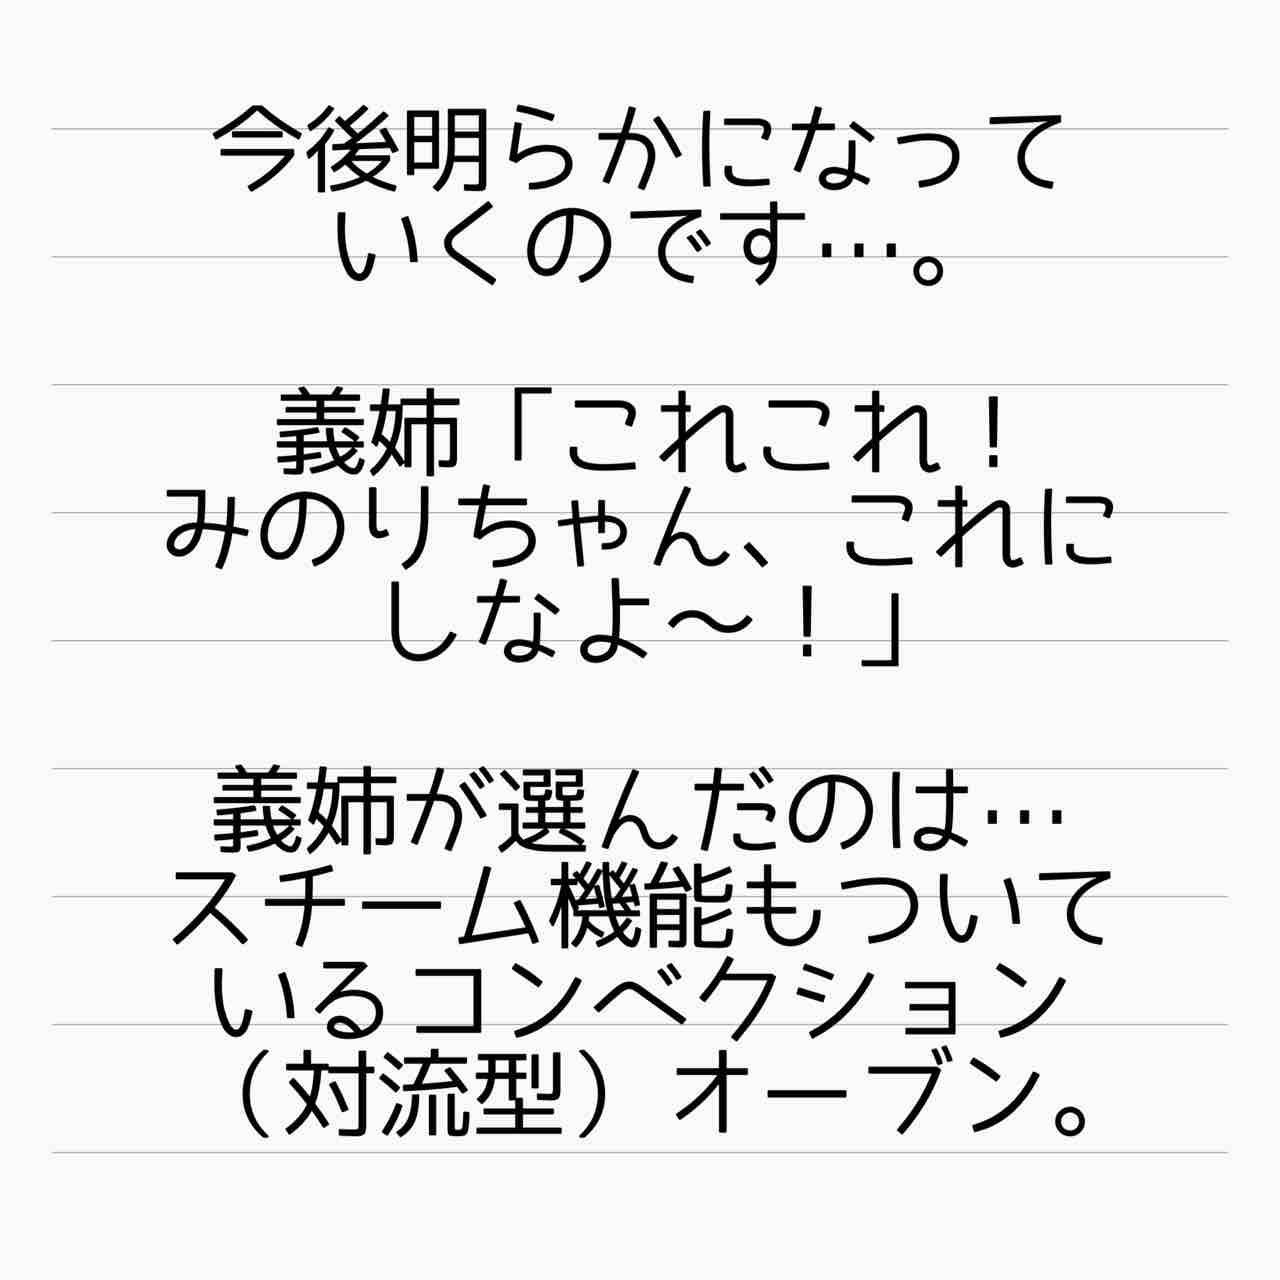 今後明らかになって
いくのです…。
義姉「これこれ！
みのりちゃん、これに
しなよ〜！」
義姉が選んだのは…
スチーム機能もついて
いるコンベクション
（対流型）オーブン。